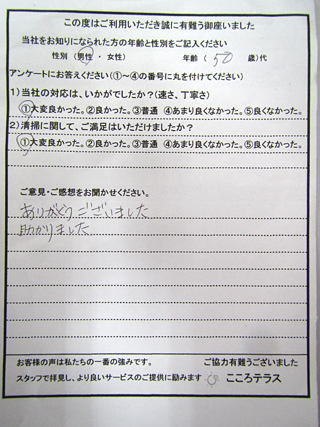 この度はご利用いただき誠に有難う御座いました
当社をお知りになられた方の年齢と性別をご記入ください
性別 (男性 ・ 女性) 年齢 ( 50 歳)代
アンケートにお答えください(①~④の番号に丸を付けてください)
1)当社の対応は、いかがでしたか?(速さ、丁寧さ)
①大変良かった。②良かった。③普通 ④あまり良くなかった。⑤良くなかった。
2)清掃に関して、ご満足はいただけましたか?
①大変良かった。②良かった。③普通 ④あまり良くなかった。⑤良くなかった。
ご意見・ご感想をお聞かせください。
ありがとうございました
助かりました
お客様の声は私たちの一番の強みです。 ご協力有難うございました
スタッフで拝見し、より良いサービスのご提供に励みます こころテラス